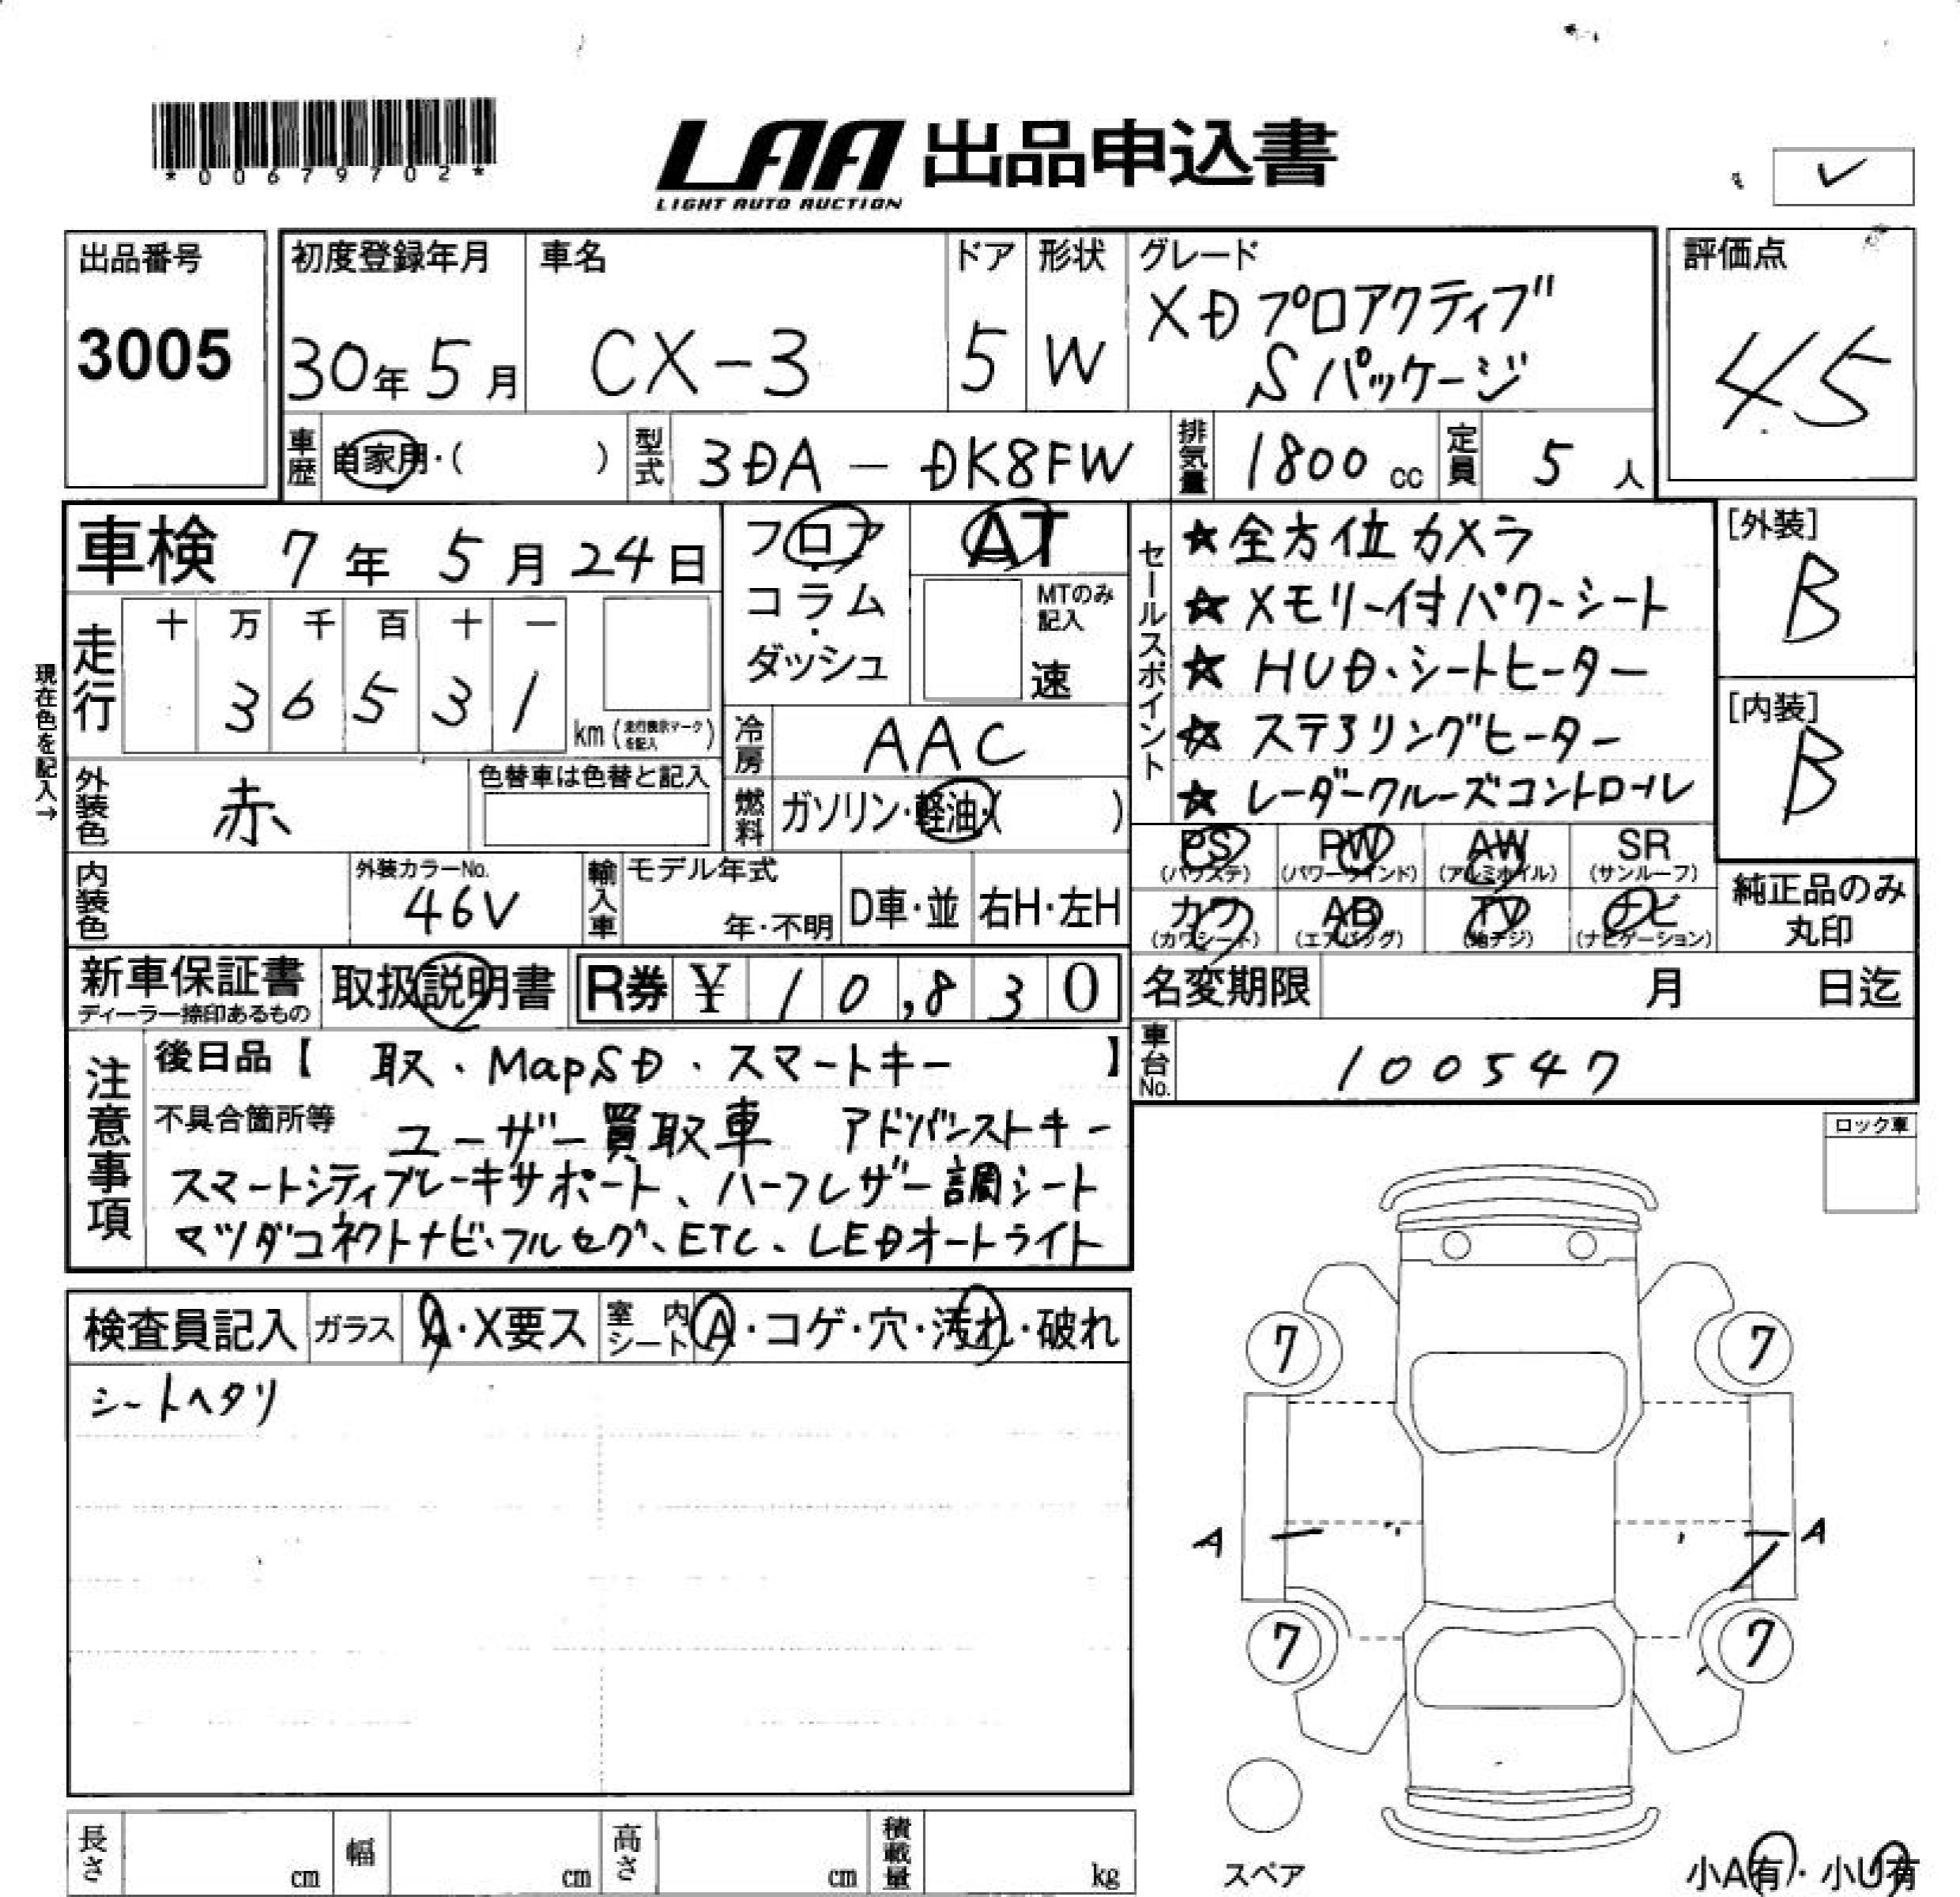 *00679702*
LAA 出品申込書
LIGHT AUTO AUCTION
✓
出品番号
3005
初度登録年月
30年 5月
車名
CX-3
ドア
5
形状
W
グレード
XD プロアクティブ
Sパッケージ
評価点
4.5
車歴 自家用・( )
型式 3DA-DK8FW
排気量 1800 cc
定員 5 人
車検 7年 5月 24日
走行
十 万 千 百 十 一
3 6 5 3 1
km(走行表示マークを記入)
現在色を記入→
外装色 赤
色替車は色替と記入
内装色
外装カラーNo.
46V
フロア・コラム・ダッシュ
AT
MTのみ記入
速
冷房 AAC
燃料 ガソリン・軽油・( )
輸入車
モデル年式
年・不明
D車・並
右H・左H
セールスポイント
★全方位カメラ
★メモリー付パワーシート
★HUD、シートヒーター
★ステアリングヒーター
★レーダークルーズコントロール
[外装]
B
[内装]
B
PS (パワステ)
PW (パワーウインド)
AW (アルミホイル)
SR (サンルーフ)
カワ (カワシート)
AB (エアバッグ)
TV (地デジ)
ナビ (ナビゲーション)
純正品のみ丸印
新車保証書
ディーラー捺印あるもの
取扱説明書
R券 ¥ 10,830
名変期限 月 日迄
車台No. 100547
注意事項
後日品【 取、MapSD、スマートキー 】
不具合箇所等 ユーザー買取車 アドバンストキー
スマートシティブレーキサポート、ハーフレザー調シート
マツダコネクトナビ、フルセグ、ETC、LEDオートライト
ロック車
検査員記入 ガラス A・X要ス 室内シート A・コゲ・穴・汚れ・破れ
シートヘタリ
7 7
A A
7 7
スペア
小A有・小U有
長さ cm 幅 cm 高さ cm 積載量 kg